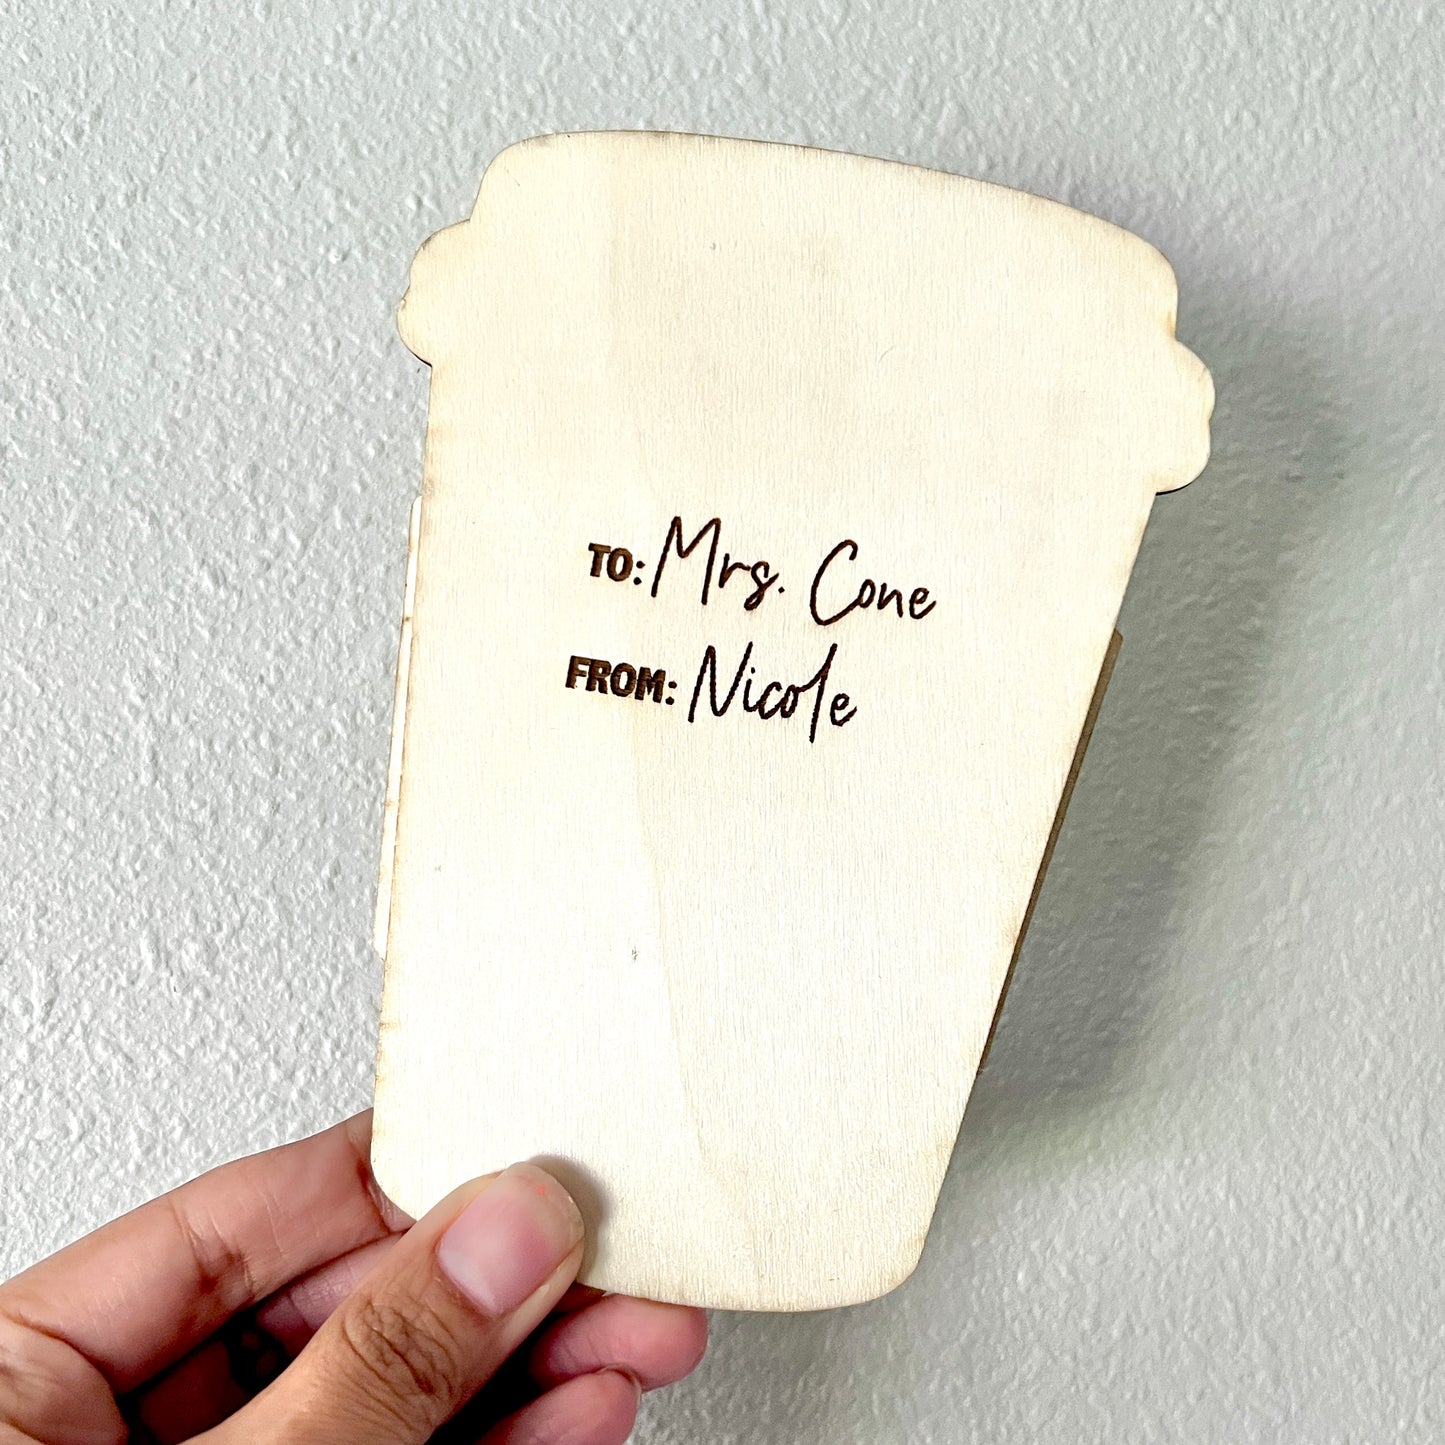 TO: Mrs. Cone
FROM: Nicole